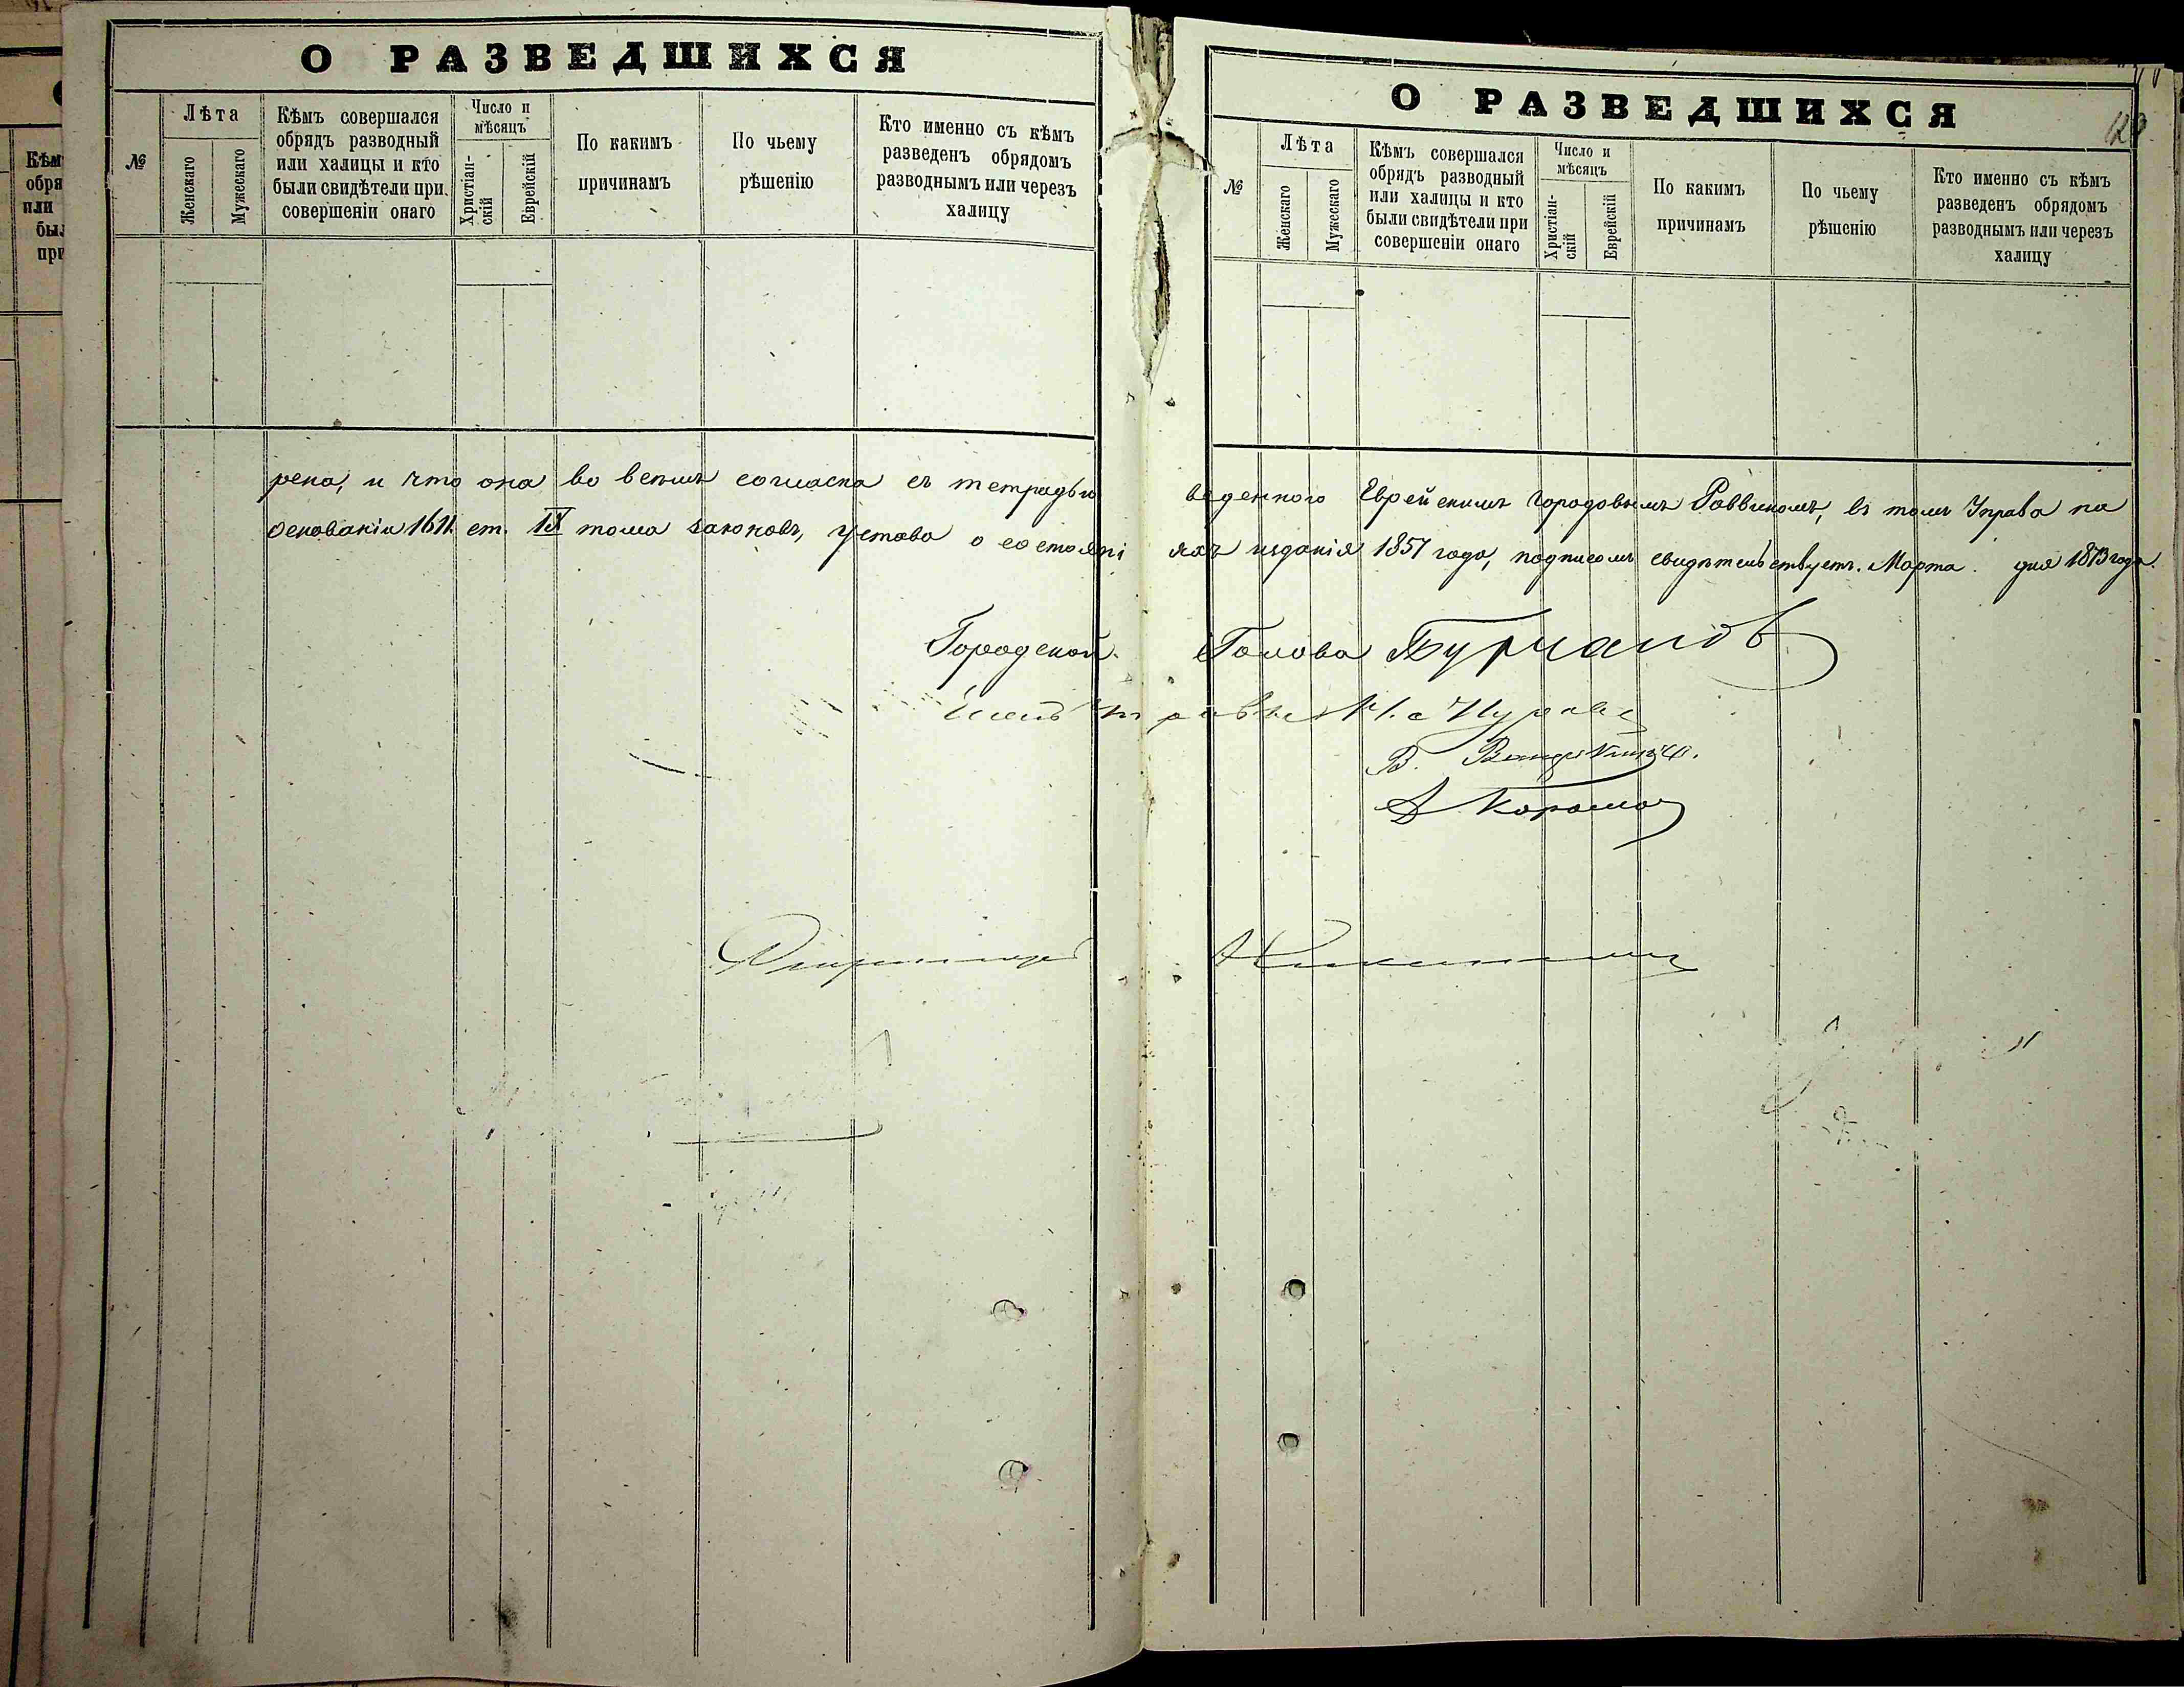 О РАЗВЕДШИХСЯ
№
Лѣта
Женскаго
Мужескаго
Кѣмъ совершался
обрядъ разводный
или халицы и кто
были свидѣтели при
совершеніи онаго
Число и
мѣсяцъ
Христіан-
скій
Еврейскій
По какимъ
причинамъ
По чьему
рѣшенію
Кто именно съ кѣмъ
разведенъ обрядомъ
разводнымъ или черезъ
халицу
О РАЗВЕДШИХСЯ
№
Лѣта
Женскаго
Мужескаго
Кѣмъ совершался
обрядъ разводный
или халицы и кто
были свидѣтели при
совершеніи онаго
Число и
мѣсяцъ
Христіан-
скій
Еврейскій
По какимъ
причинамъ
По чьему
рѣшенію
Кто именно съ кѣмъ
разведенъ обрядомъ
разводнымъ или черезъ
халицу
рена, и что она во всемъ согласна съ тетрадью веденного Еврейскимъ Городовымъ Раввиномъ, въ томъ Управа на
основаніи 1611 ст. IX тома законовъ, устава о состояніяхъ изданія 1857 года, подписомъ свидѣтельствуетъ. Марта дня 1873 года.
Городской Голова